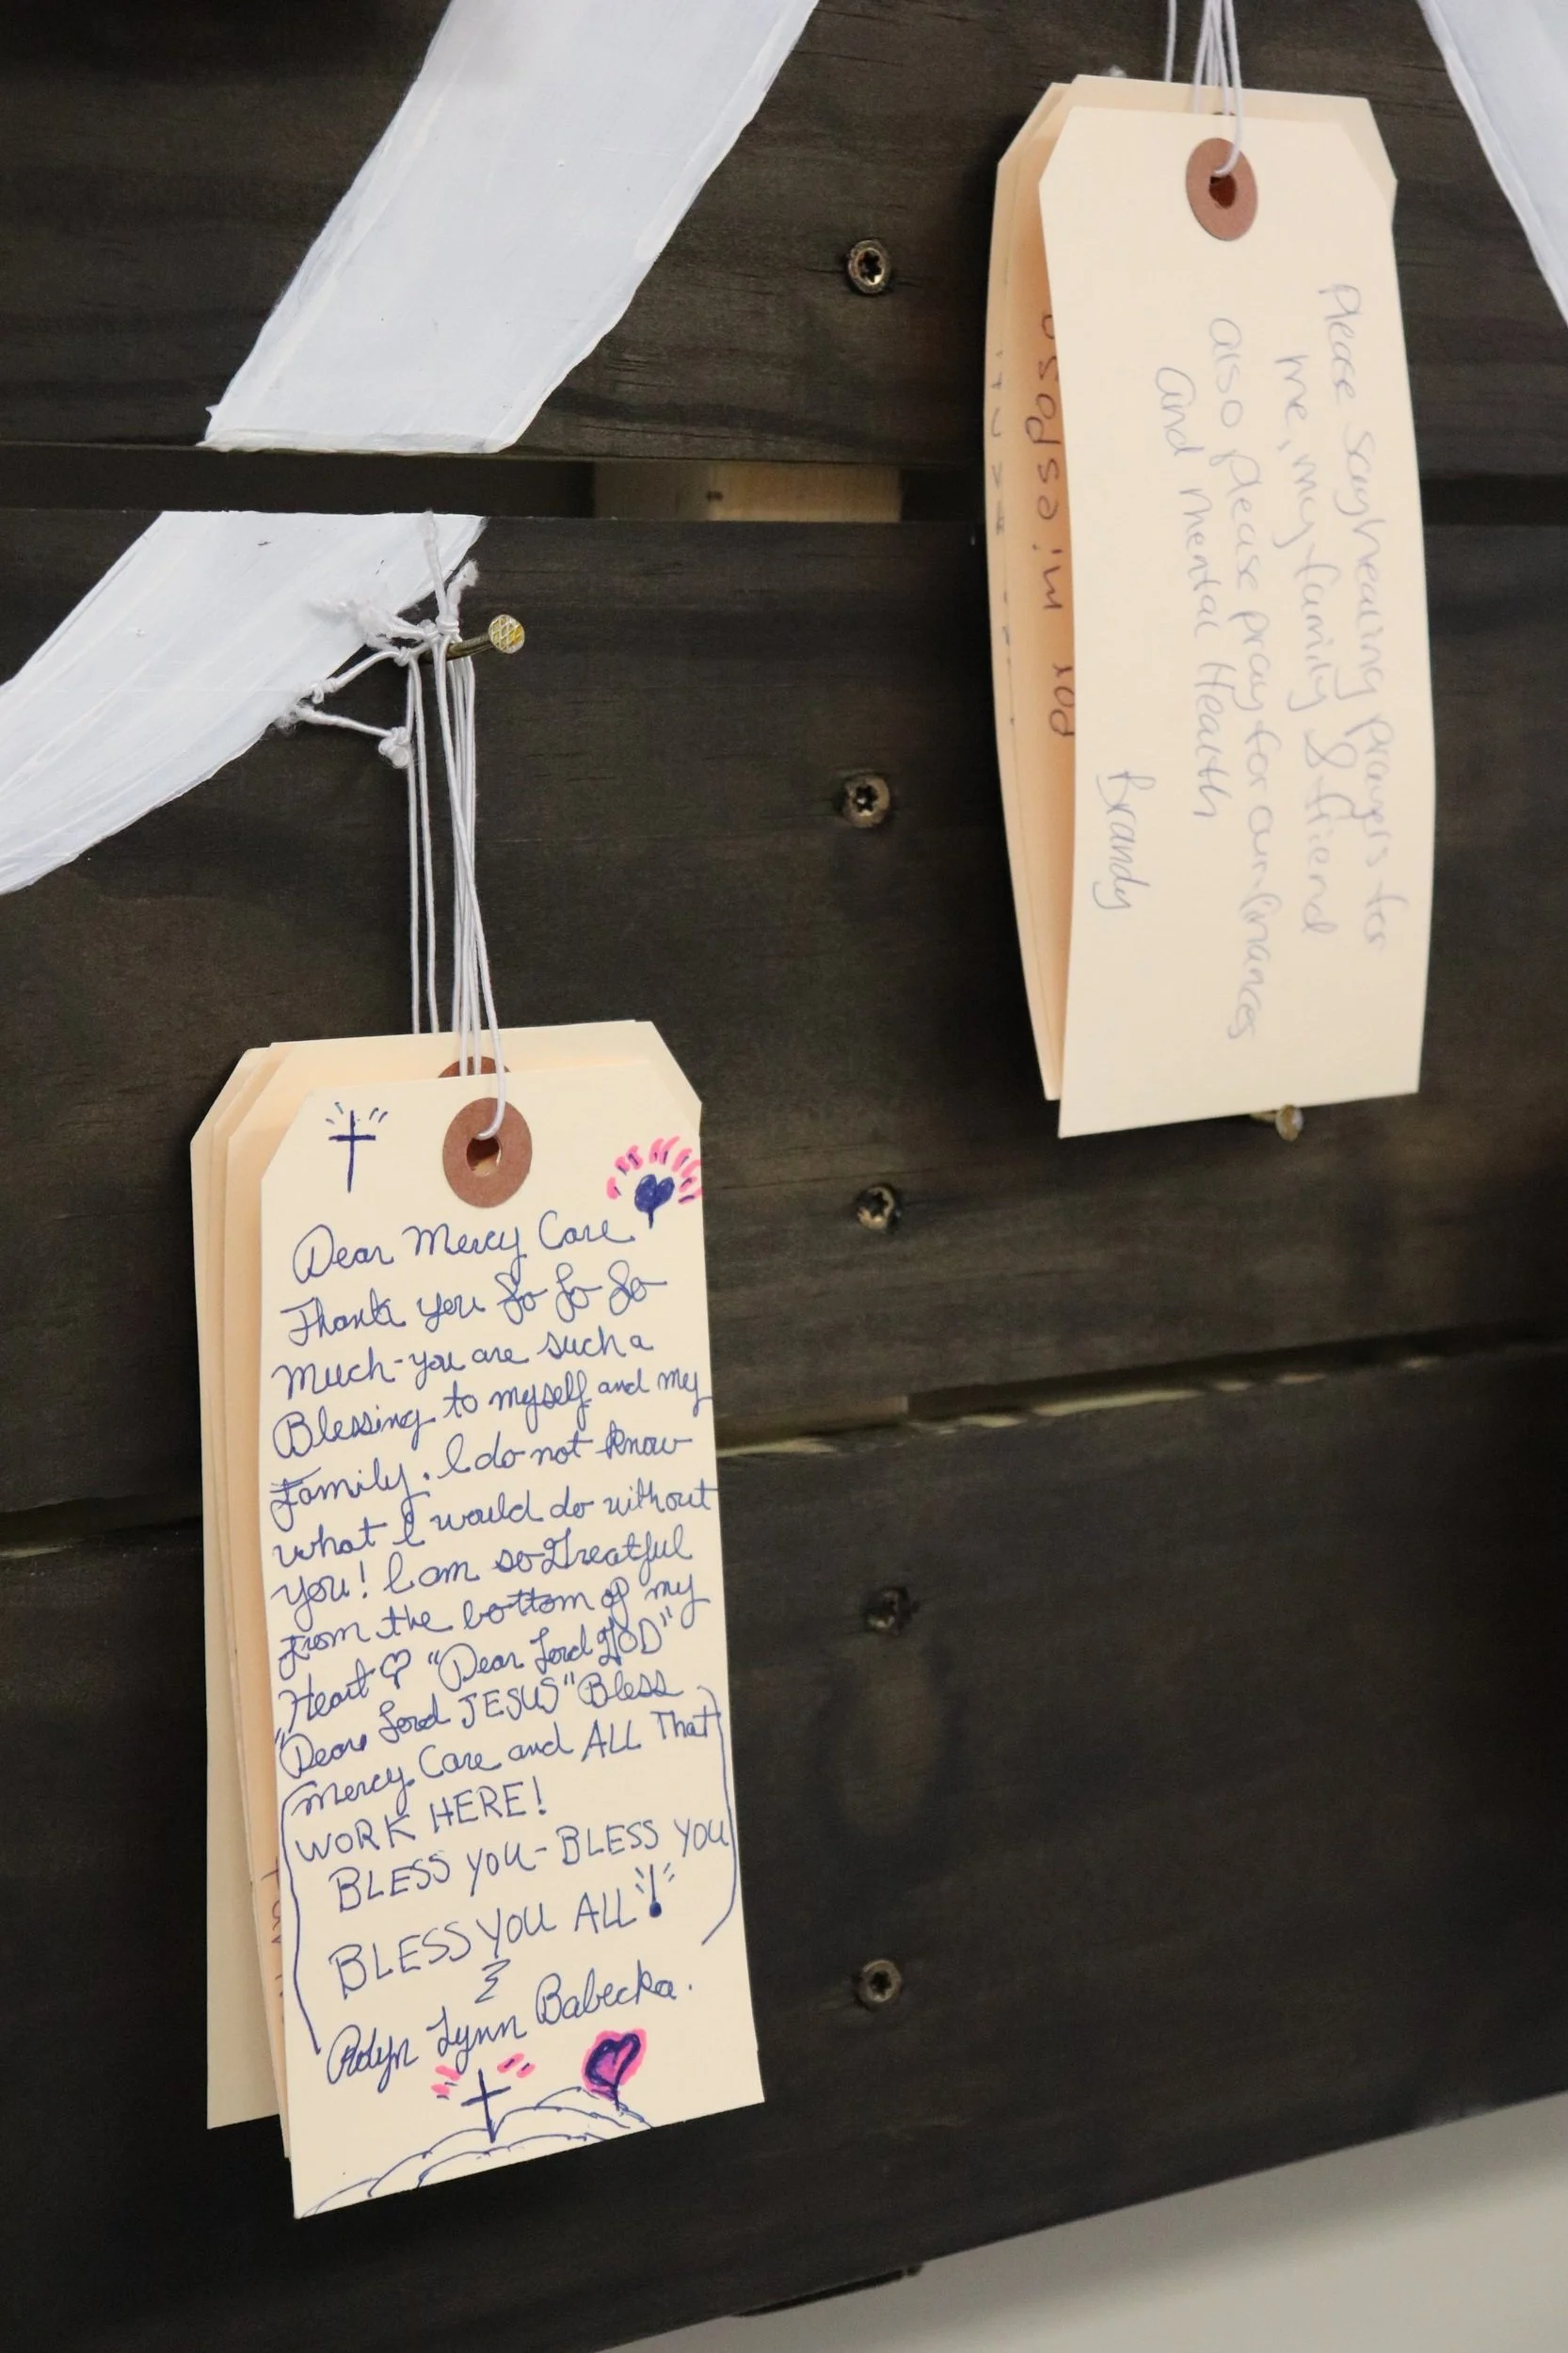 Dear Mercy Care
Thank you So So So
Much-you are such a
Blessing to myself and my
Family. I do not know
what I would do without
you! I am so Greatful
from the bottom of my
Heart "Dear Lord GOD"
"Dear Lord JESUS" Bless
Mercy Care and ALL That
WORK HERE!
BLESS YOU-BLESS YOU
BLESS YOU ALL!
Lynn Babecka.
Please say healing prayers for
me, my family & friend
also please pray for our finances
and mental Health
Brandy
por mi esposo